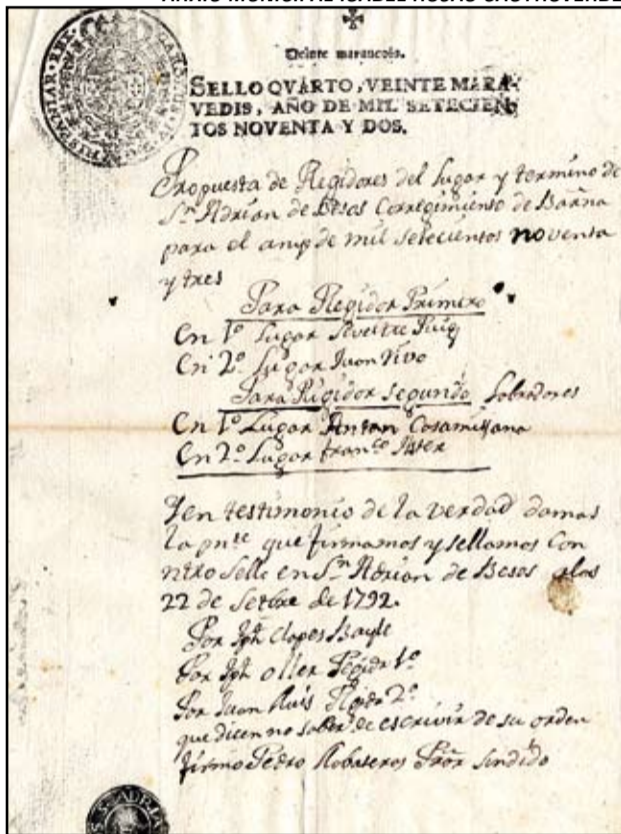 ARXIU MUNICIPAL ISABEL ROJAS CASTROVERDE
HISPANIAR. REX
Veinte maravedis.
SELLO QVARTO, VEINTE MARA-
VEDIS, AÑO DE MIL SETECIEN-
TOS NOVENTA Y DOS.
Propuesta de Regidores del Lugar y termino de
Sn. Adrian de Besos Corregimiento de Barña
para el any de mil setecientos noventa
y tres
Para Regidor Primero
En 1º Lugar Silvestre Puig
En 2º Lugar Juan Vivo
Para Rigidor Segundo Lobradores
En 1º Lugar Antan Cosamitjana
En 2º Lugar franco.
Y en testimonio de la verdad damos
la pnte. que firmamos y sellamos Con
ntro Sello en Sn. Adrian de Besos alos
22 de Setbre de 1792.
Por Jph Clapes Bayle
Por Jph oller Regidr 1º
Por Juan Ruis 2º
que dicen no saber de escrivir de su orden
firmo Pedro Robaseros Pror Sindido
S. ADRIA